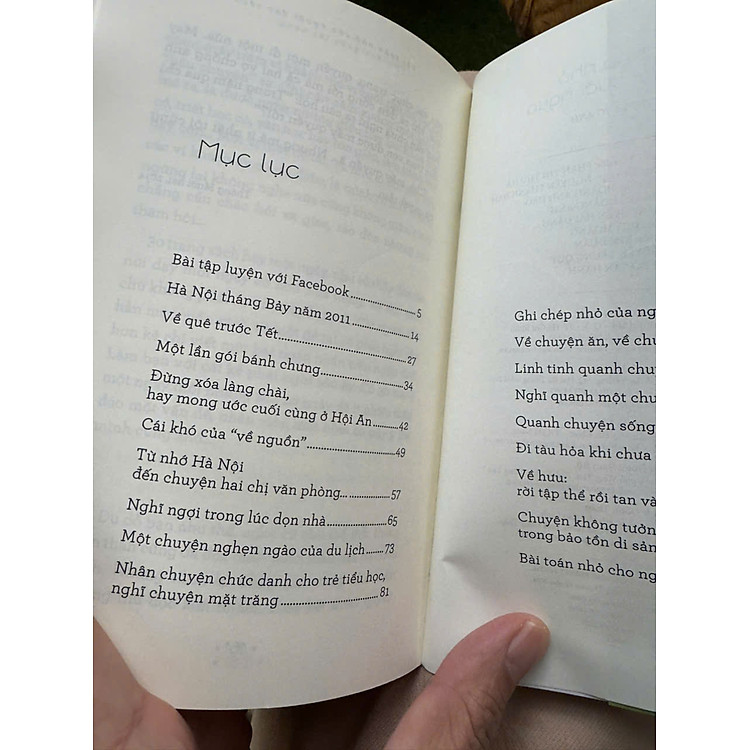 Mục lục
Bài tập luyện với Facebook..................5
Hà Nội tháng Bảy năm 2011................14
Về quê trước Tết..................................27
Một lần gói bánh chưng......................34
Đừng xóa làng chài,
hay mong ước cuối cùng ở Hội An........42
Cái khó của “về nguồn”.......................49
Từ nhớ Hà Nội
đến chuyện hai chị văn phòng...............57
Nghĩ ngợi trong lúc dọn nhà...............65
Một chuyện nghẹn ngào của du lịch......73
Nhân chuyện chức danh cho trẻ tiểu học,
nghĩ chuyện mặt trăng........................81
Ghi chép nhỏ của ng
Về chuyện ăn, về chu
Linh tinh quanh chu
Nghĩ quanh một chu
Quanh chuyện sống
Đi tàu hỏa khi chưa
Về hưu:
rời tập thể rồi tan và
Chuyện không tưởn
trong bảo tồn di sản
Bài toán nhỏ cho ng